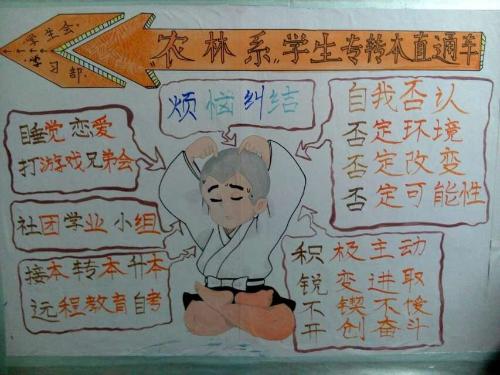 学生会
学习部
"农林系"学生专转本直通车
烦恼纠结
睡觉恋爱
打游戏兄弟会
社团学业小组
接本转本升本
远程教育自考
自我否认
否定环境
否定改变
否定可能性
积极主动
锐变进取
不锲不俊
开创奋斗